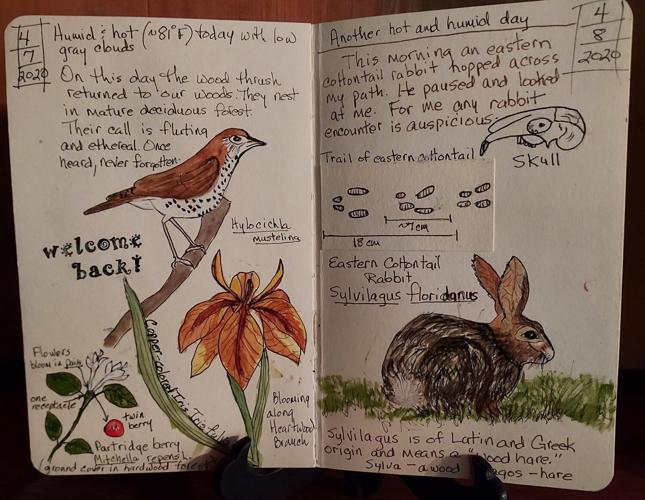 4
7
2020
Humid & hot (~81°F) today with low
gray clouds
On this day the Wood thrush
returned to our woods. They nest
in mature deciduous forest.
Their call is fluting
and ethereal. Once
heard, never forgotten.
Hylocichla
mustelina
welcome
back!
Copper-colored Iris Iris fulva
Flowers
bloom in pairs
one
receptacle
twin
berry
Partridge berry
Mitchella repens L.
(ground cover in hardwood forest)
Blooming
along
Heartwood
Branch
Another hot and humid day
4
8
2020
This morning an eastern
cottontail rabbit hopped across
my path. He paused and looked
at me. For me any rabbit
encounter is auspicious.
Skull
Trail of eastern cottontail
~7cm
18 cm
Eastern Cottontail
Rabbit
Sylvilagus floridanus
Sylvilagus is of Latin and Greek
origin and means a "wood hare."
Sylva - a wood agos - hare